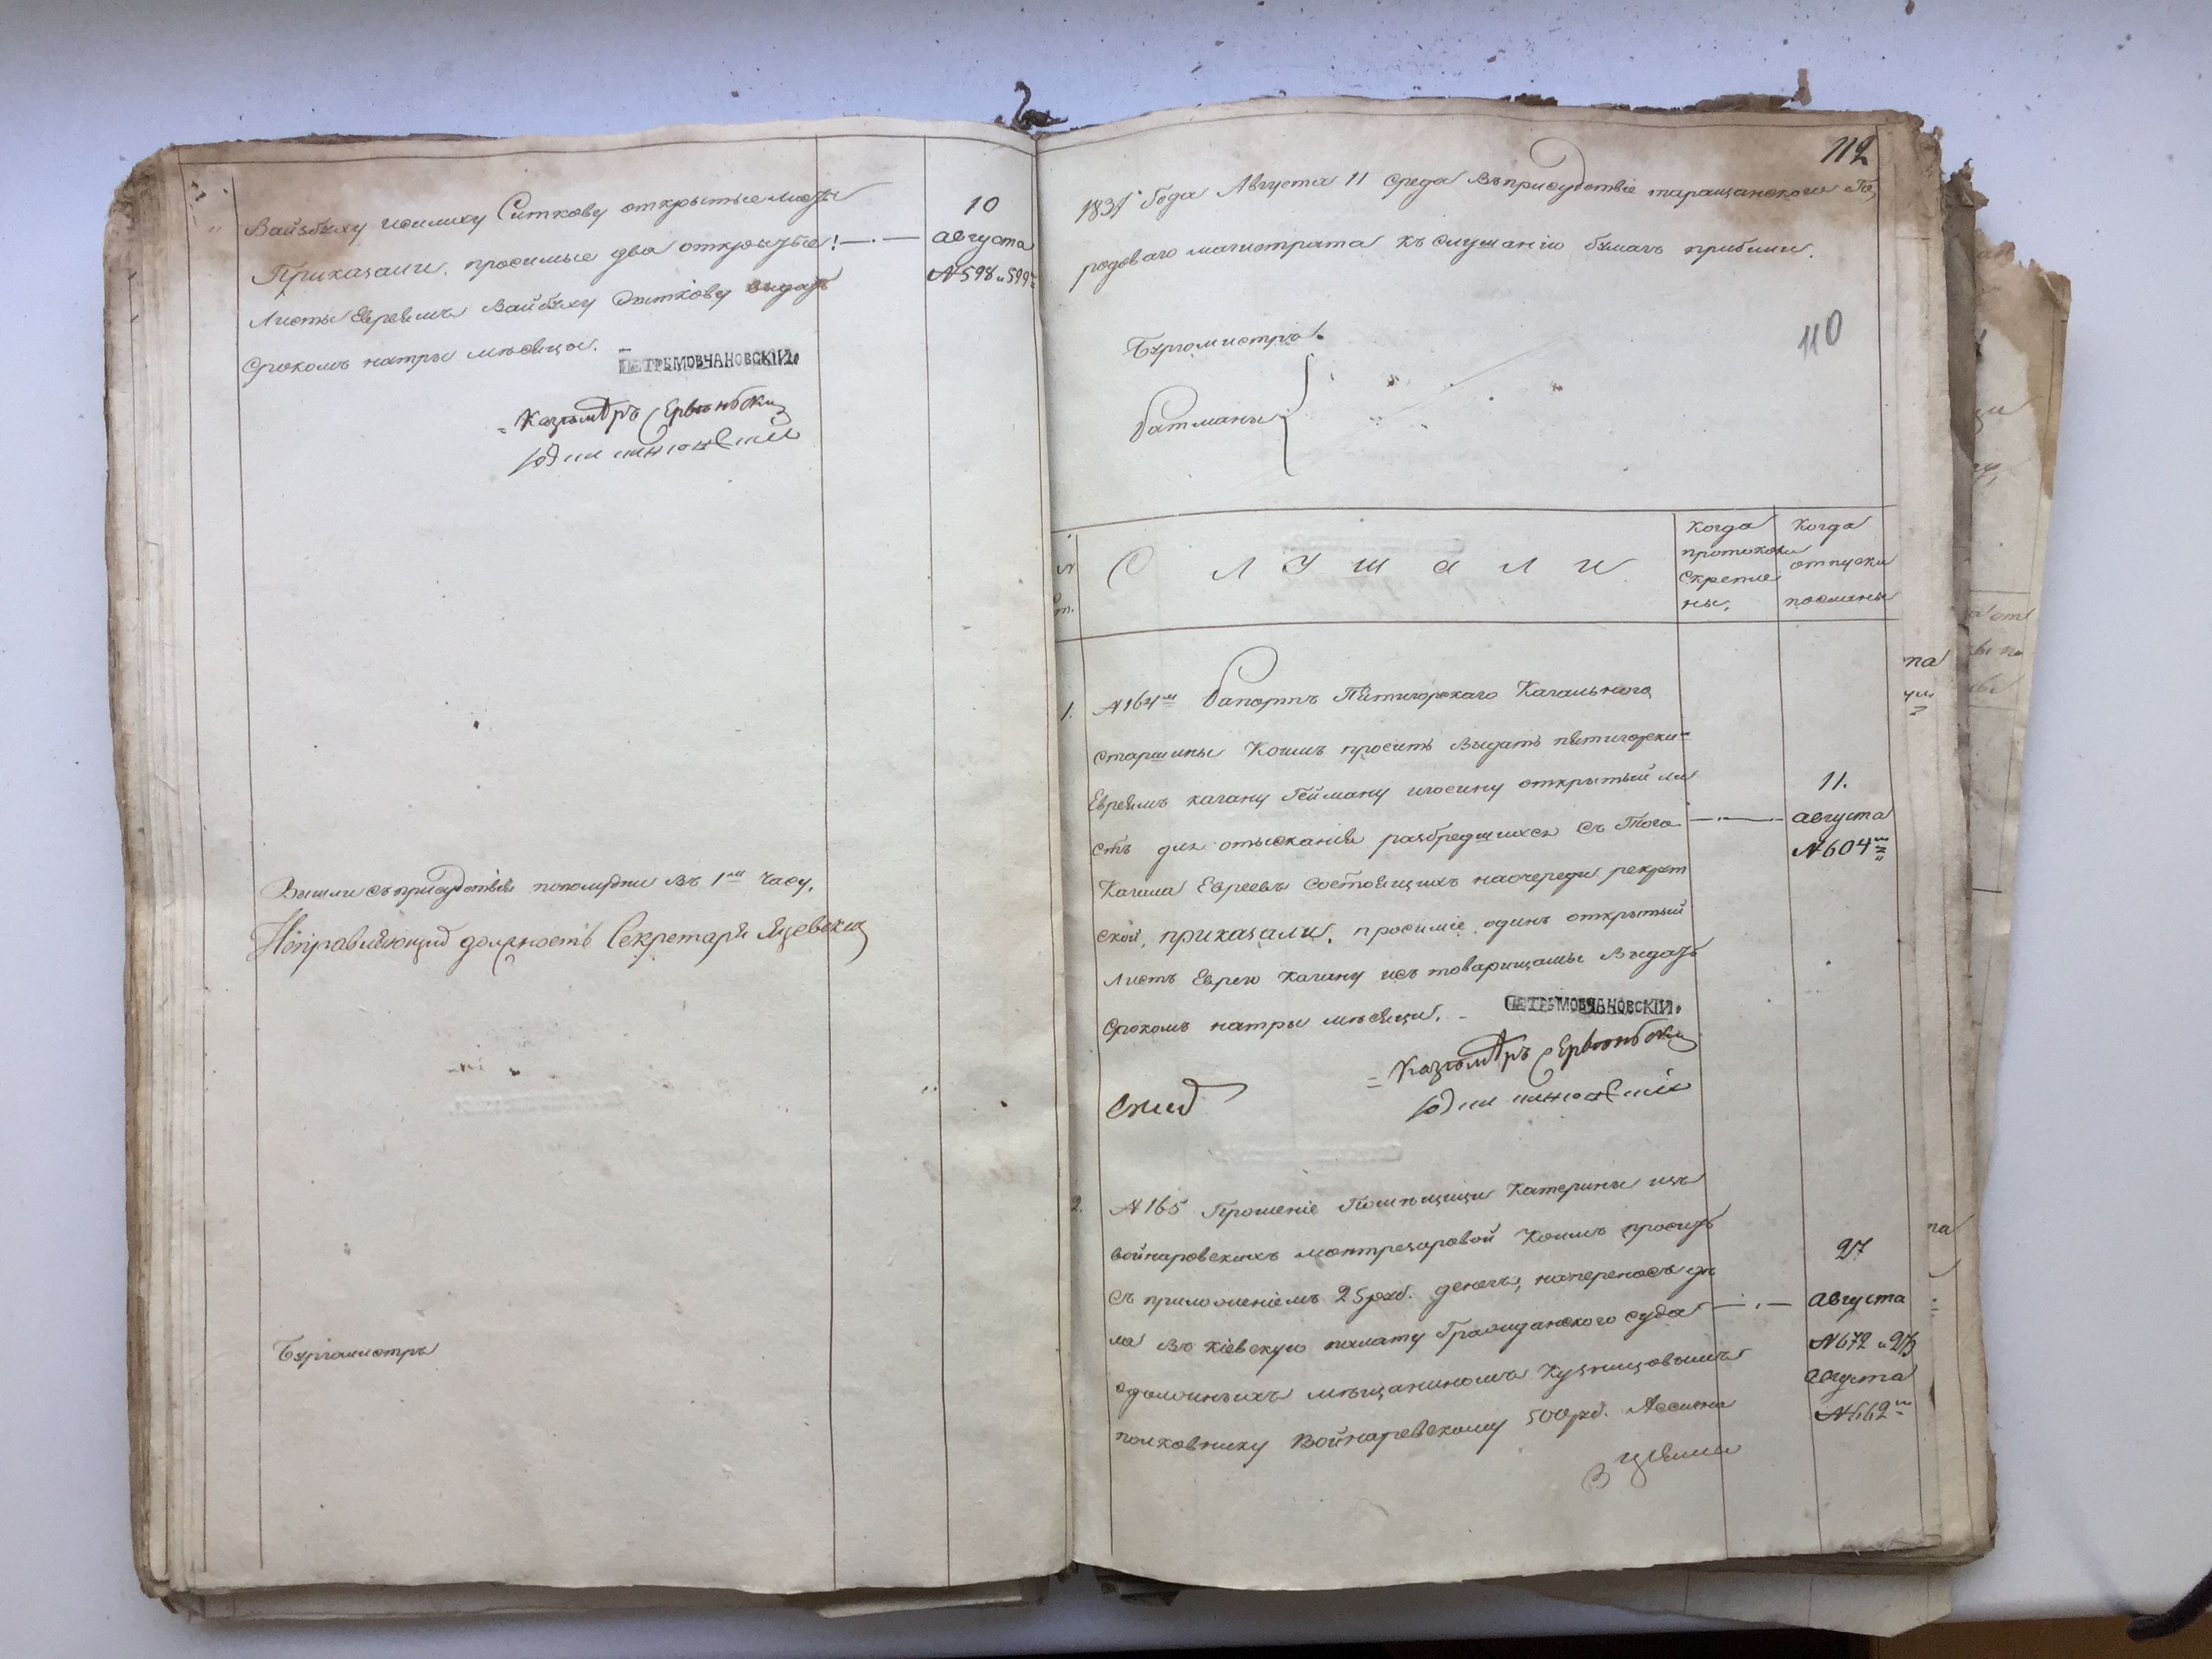 Вайзблху исилиху Ситкову открытые листы
Приказали. просимые два открытые
Листы Евреямъ Вайзблху Ситкову выдать
срокомъ натри месяца.
ПЕТРЪ МОВЧАНОВСКИЙ.
10
августа
№ 598 и 599
Казымѣръ
Вышли съ присудствія пополудни въ 1мъ часу.
Исправляющій должность Секретаря Яцевскій
Бургомистръ
112
1831 Года Августа 11 Среда Въприсудствіе таращанского Го
родового магистрата къ слушанію бумагъ прибыли.
110
Бургомистръ
Ратманы
№
ст.
СЛУШАЛИ
Когда
протоколы
скрепле
ны.
Когда
отпуски
посланы
1. №164й Рапортъ Пятигорскаго Кагального
старшины Коимъ проситъ выдать пятигорски=
Евреямъ кагану Гейману иосину открытый ли
стъ для отысканія разбредшихся съ Того
Кагала Евреевъ состоящихъ наочереди рекрет
ской, приказали. просиміе одинъ открытый
Листъ Еврею Кагану исъ товарищамы Выдать
срокомъ натри месяци.
11.
августа
№604
ПЕТРЪ МОВЧАНОВСКИЙ.
Казымѣръ
2. №165 Прошеніе Помѣщици Катерины изъ
войнаровскихъ монтрезоровой Коимъ проситъ
съ приложеніемъ 25 руб. денегъ, напереносъ дѣ
ла Во кіевскую палату Гражданского суда
одолжныхъ мѣщаниномъ Кузницовымъ
полковнику Войнаровскому 500 руб. Ассигна
ціями
27
августа
№672 и 27
августа
№662